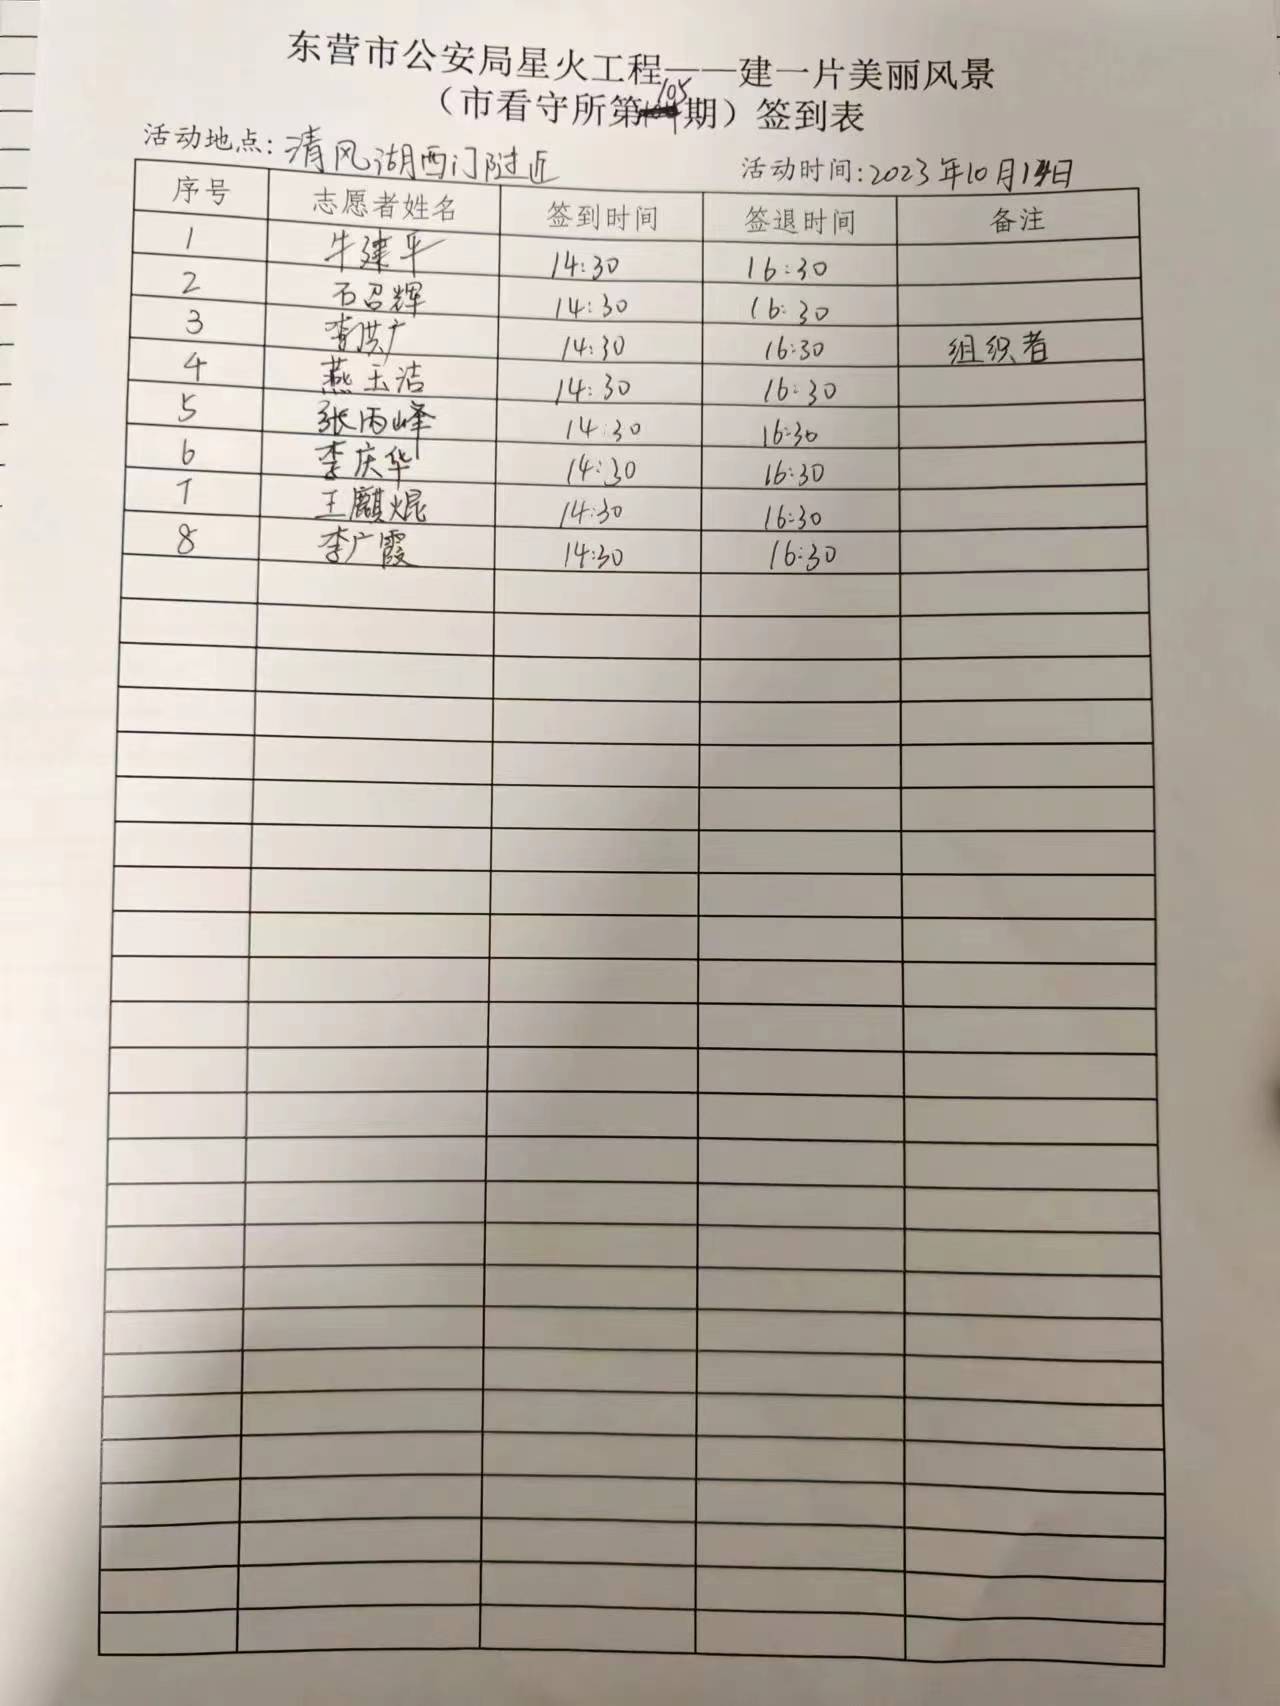 东营市公安局星火工程——建一片美丽风景
（市看守所第105期）签到表
活动地点：清风湖西门附近 活动时间：2023年10月14日
序号 志愿者姓名 签到时间 签退时间 备注
1 牛建平 14:30 16:30
2 石召辉 14:30 16:30
3 李洪广 14:30 16:30 组织者
4 燕玉洁 14:30 16:30
5 张丙峰 14:30 16:30
6 李庆华 14:30 16:30
7 王麒焜 14:30 16:30
8 李广霞 14:30 16:30